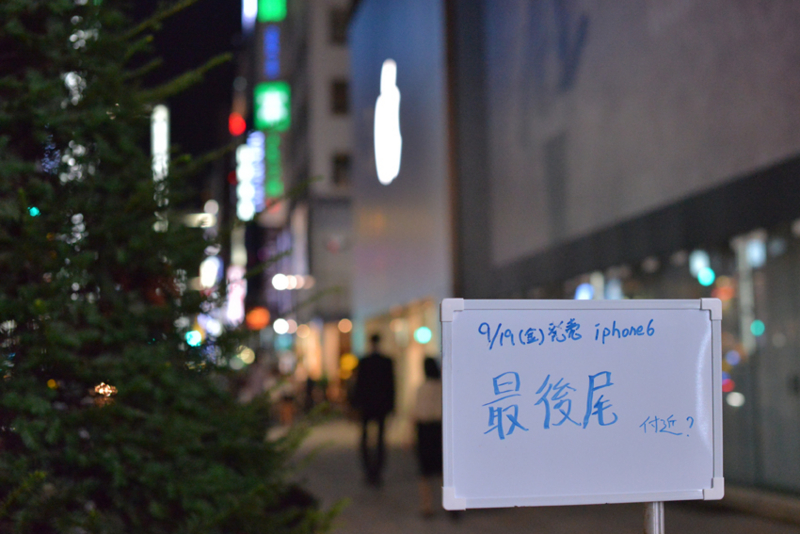 9/19(金)発売 iphone6
最後尾
付近?